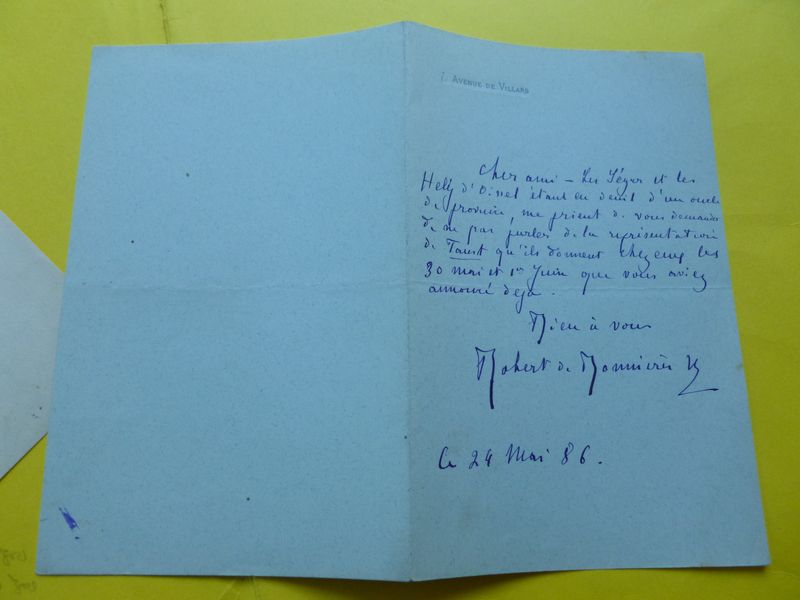 7. AVENUE DE VILLARS
Cher ami – Les Ségur et les
Hely d'Oissel étant en deuil d'un oncle
de province, me prient de vous demander
de ne pas parler de la représentation
de Faust qu'ils donnent chez eux les
30 mai et 1er Juin que vous aviez
annoncé déjà.
Bien à vous
Robert de Bonnières
Ce 24 Mai 86.